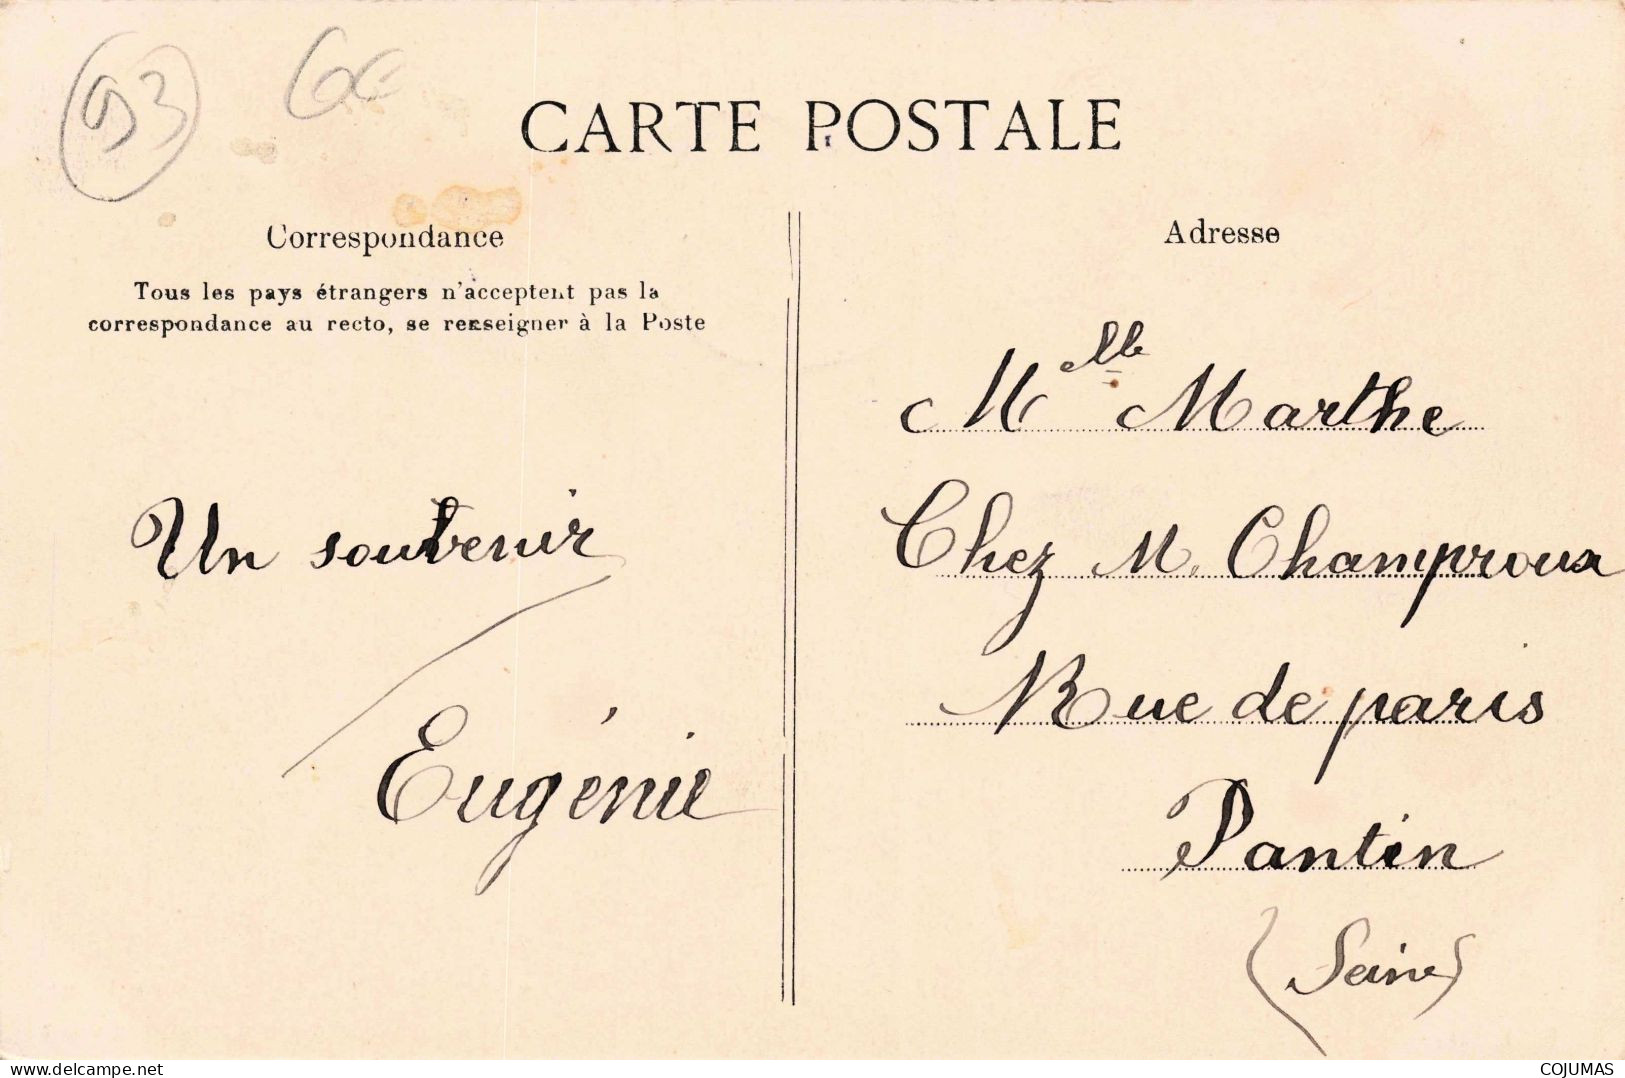 93
6€
CARTE POSTALE
Correspondance
Tous les pays étrangers n'acceptent pas la
correspondance au recto, se renseigner à la Poste
Un souvenir
Eugénie
Adresse
Mlle Marthe
Chez M. Champroux
Rue de paris
Pantin
(Seine)
www.delcampe.net
COJUMAS